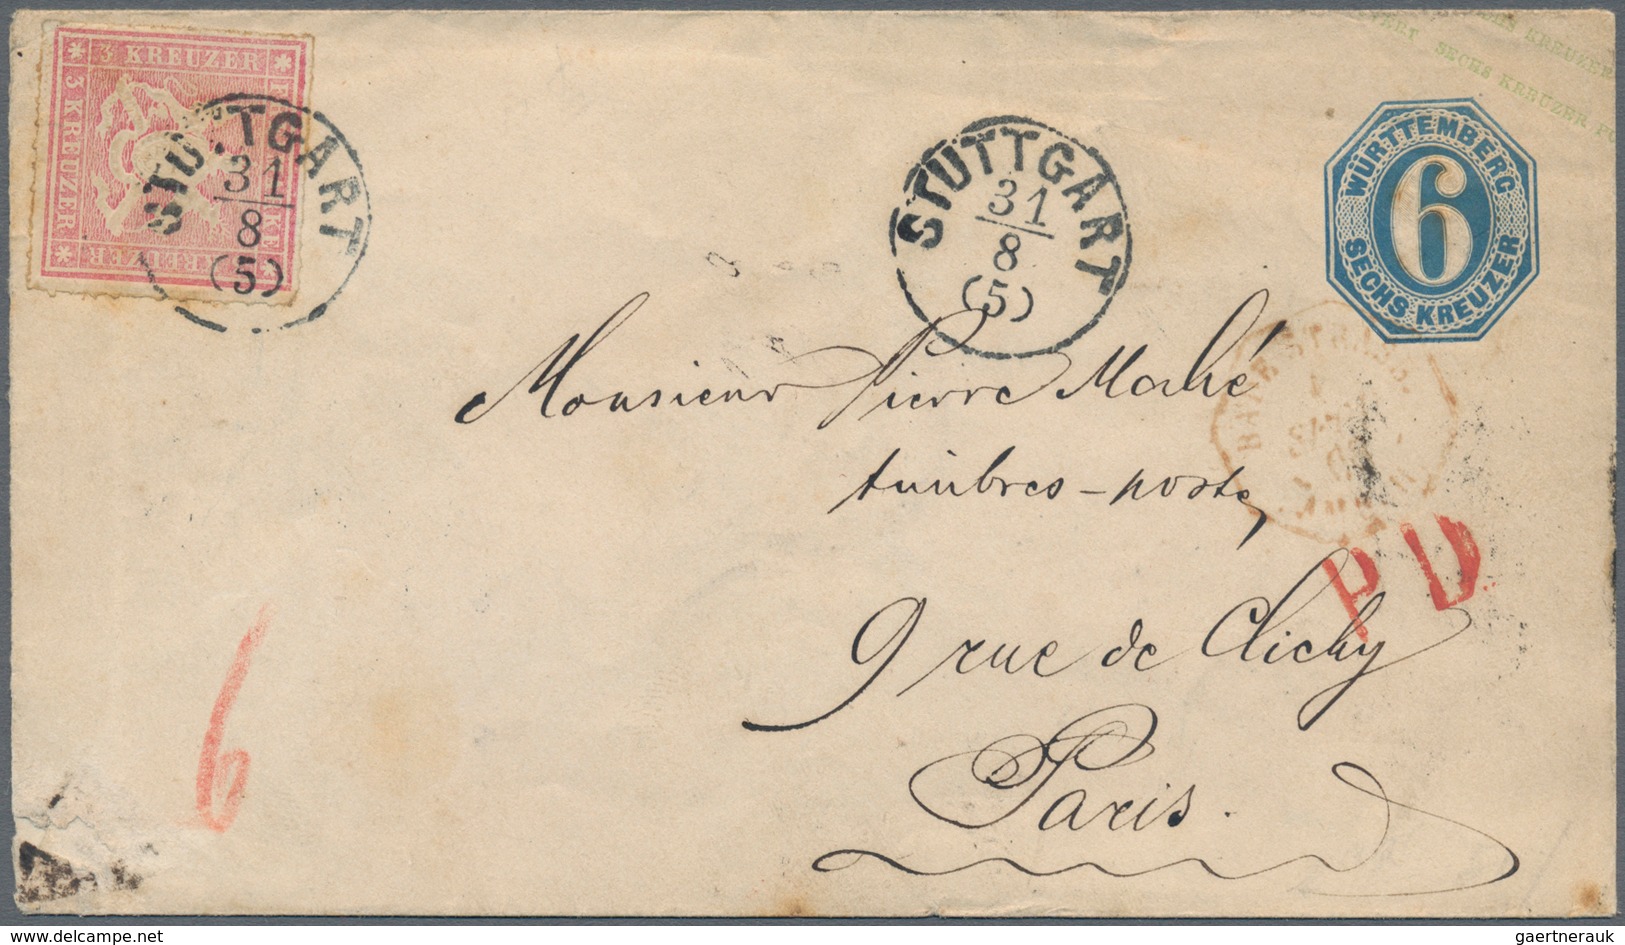 3 KREUZER
3 KREUZER
STUTTGART
31
8
(5)
STUTTGART
31
8
(5)
KREUZER
SECHS KREUZER
WÜRTTEMBERG
6
SECHS KREUZER
Monsieur Pierre Mahé
timbres-poste
9 rue de Clichy
Paris.
PD
6
gaertnerauk